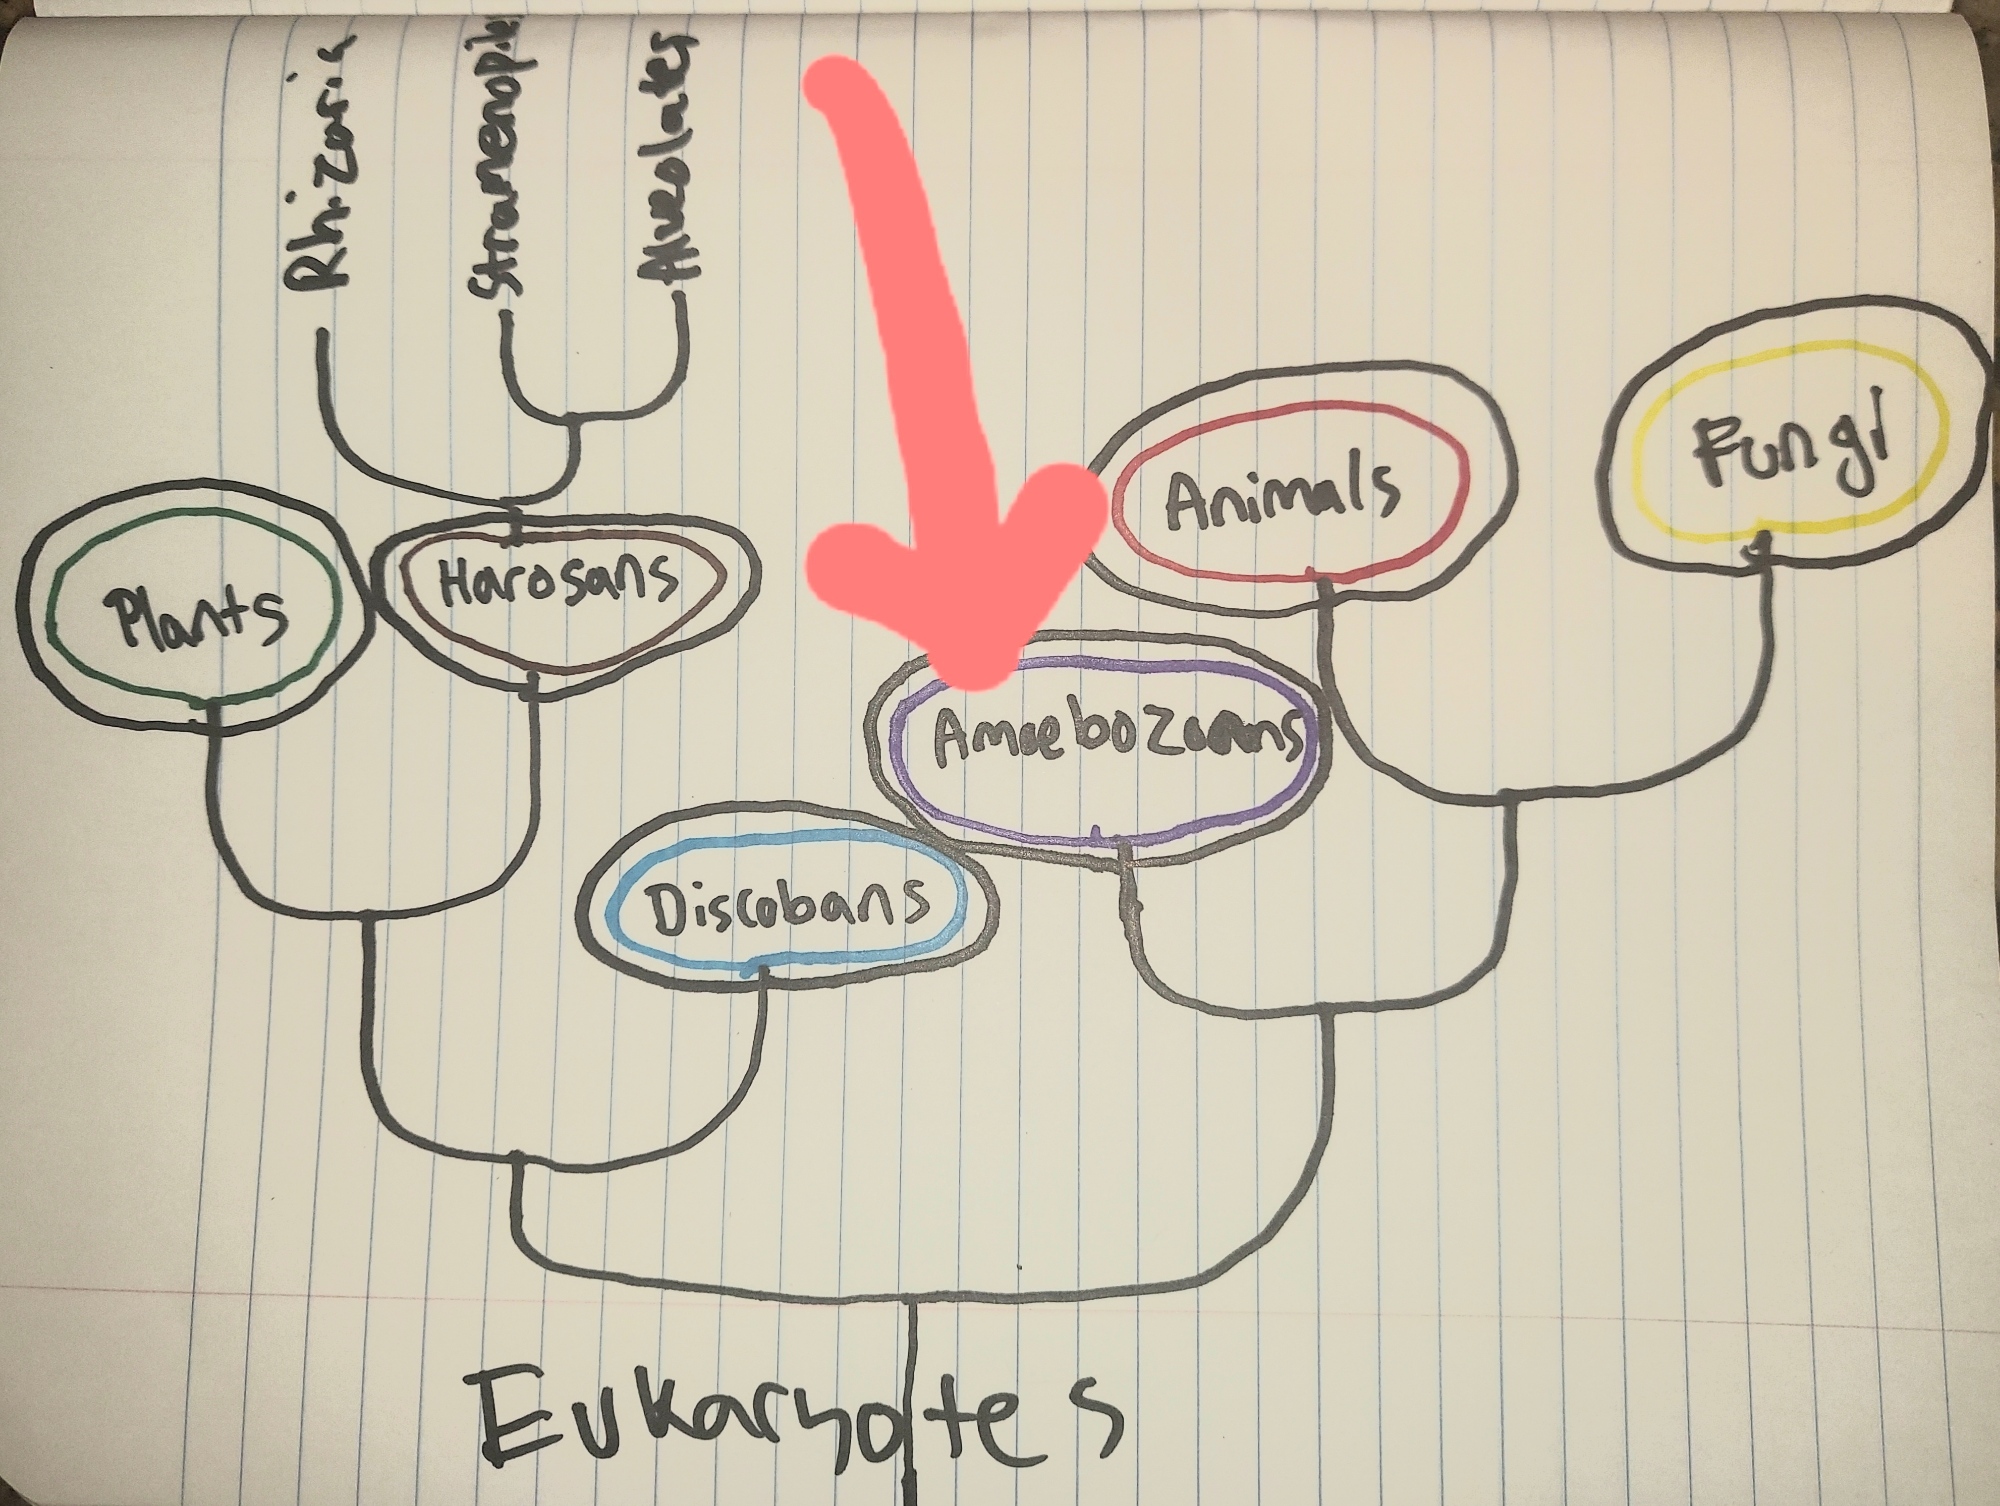 Rhizaria
Stramenopile
Alveolates
Fungi
Animals
Plants
Harosans
Amoebozoans
Discobans
Eukaryotes